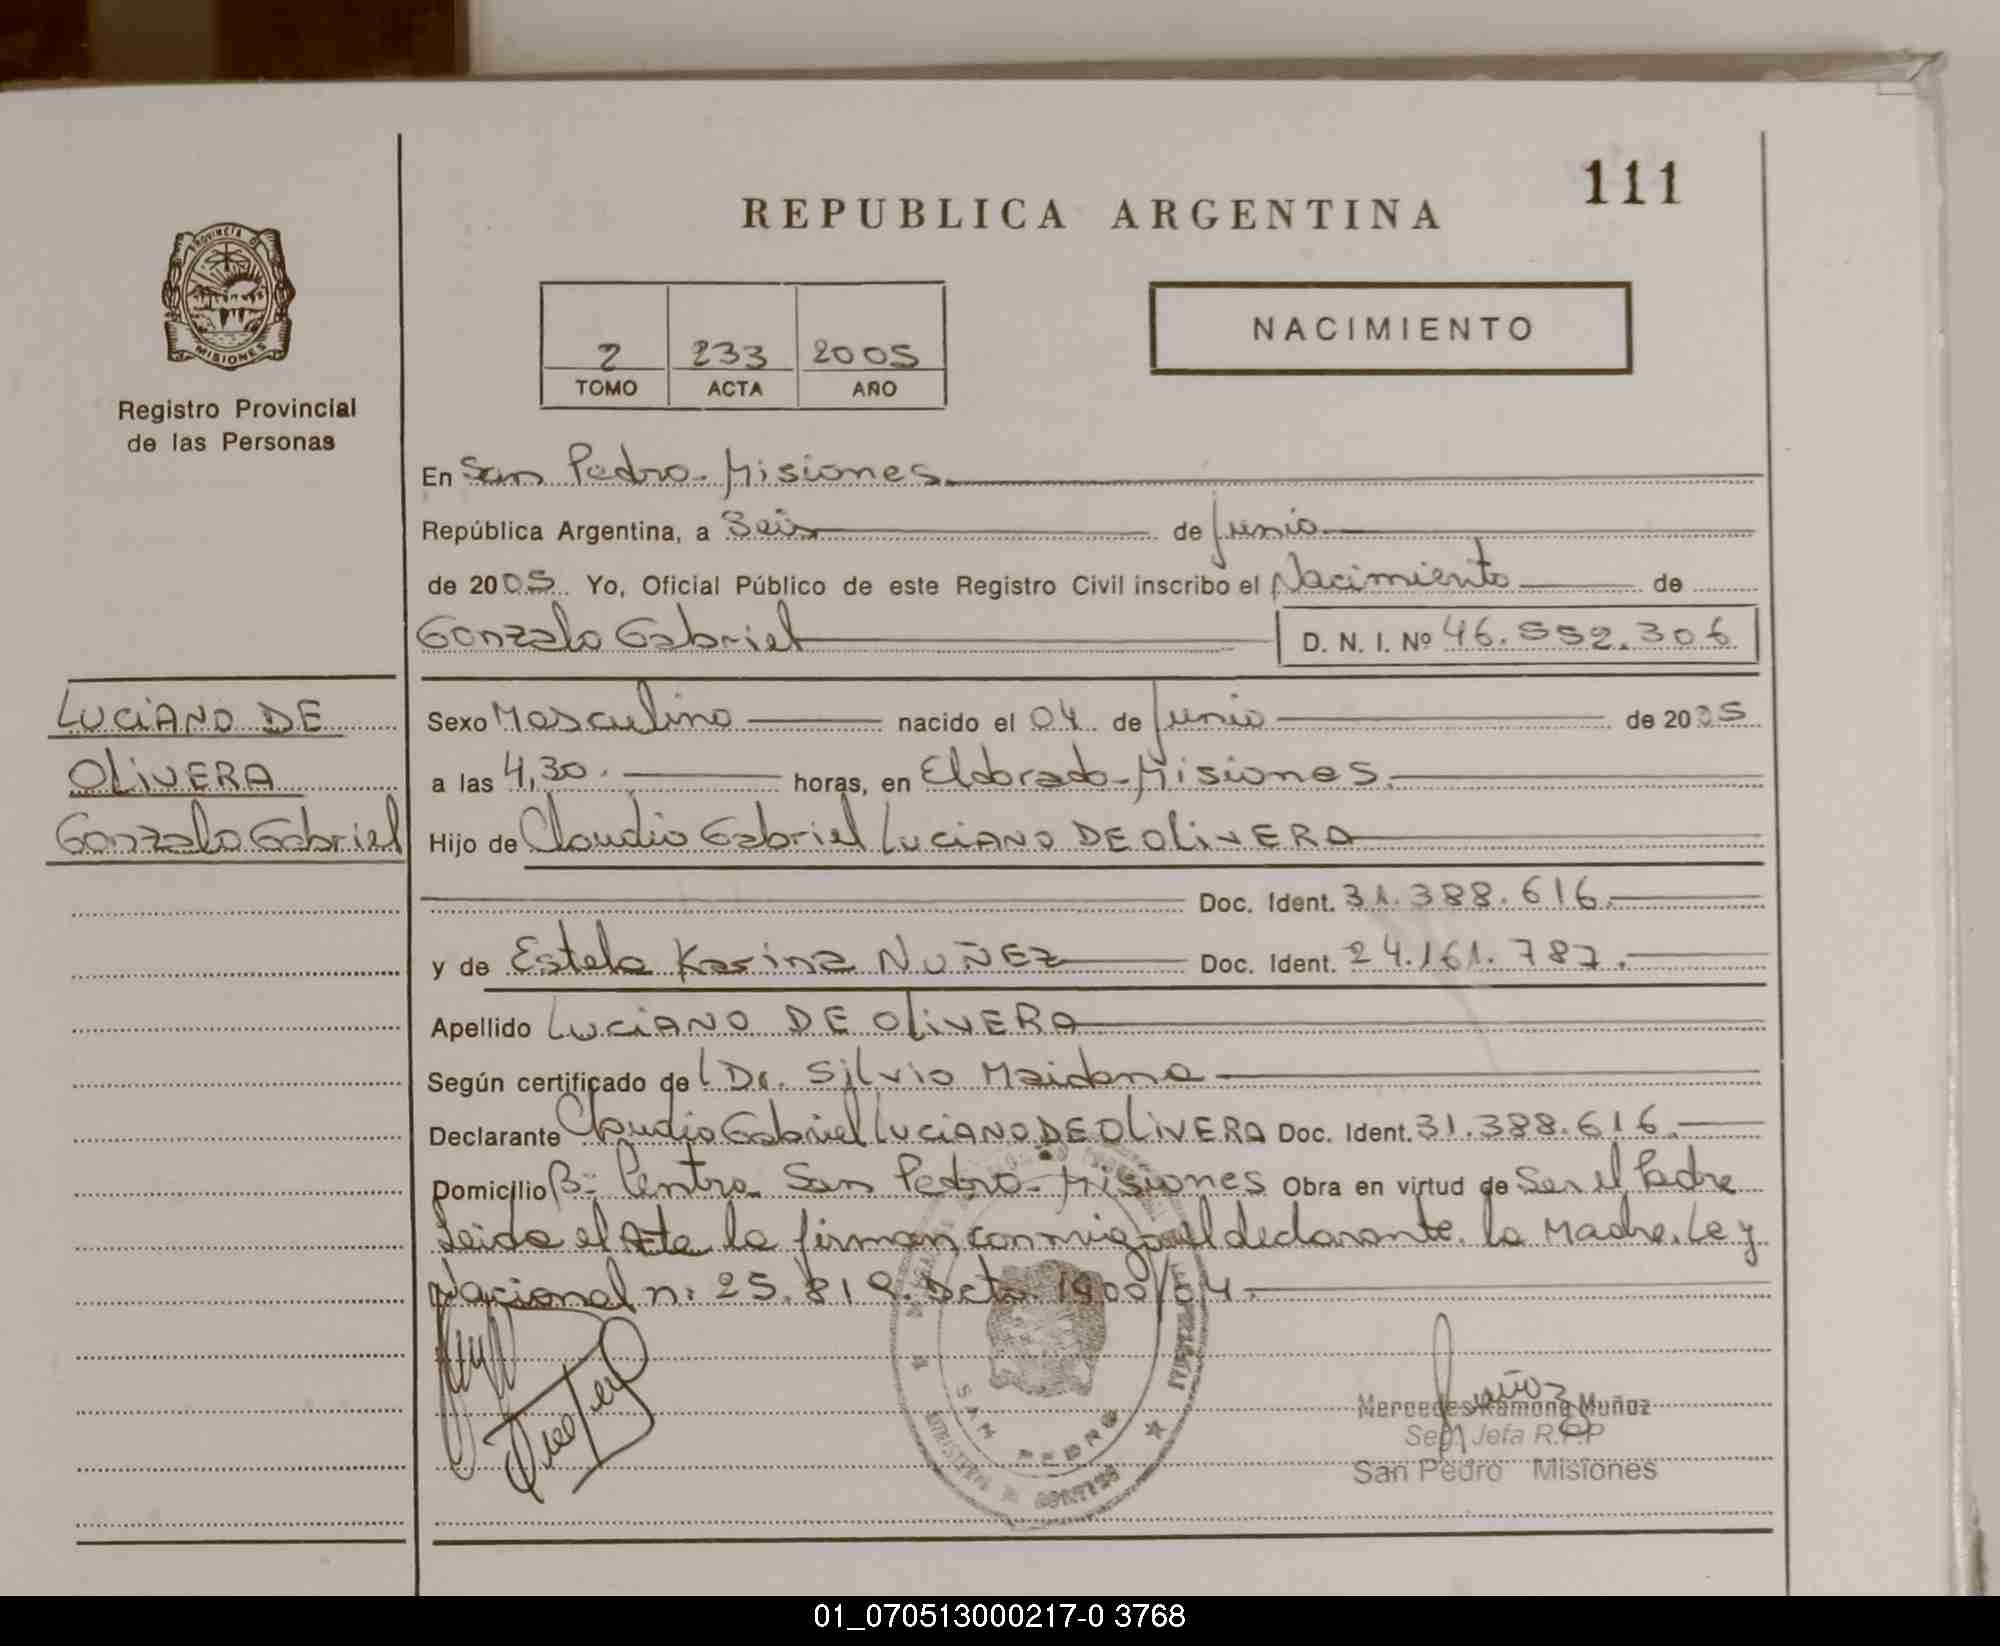 111
REPUBLICA ARGENTINA
PROVINCIA DE
MISIONES
Registro Provincial
de las Personas
2 233 2005
TOMO ACTA AÑO
NACIMIENTO
En San Pedro - Misiones
República Argentina, a Seis de Junio
de 2005 Yo, Oficial Público de este Registro Civil inscribo el Nacimiento de
Gonzalo Gabriel D. N. I. Nº 46.552.306
LUCIANO DE
OLIVERA
Gonzalo Gabriel
Sexo Masculino nacido el 04 de Junio de 2005
a las 4,30. horas, en Eldorado - Misiones.
Hijo de Claudio Gabriel LUCIANO DE OLIVERA
Doc. Ident. 31.388.616.
y de Estela Karina NUÑEZ Doc. Ident. 24.161.787.
Apellido LUCIANO DE OLIVERA
Según certificado de l Dr. Silvio Maidana
Declarante Claudio Gabriel LUCIANO DE OLIVERA Doc. Ident. 31.388.616.
Domicilio Bº Centro San Pedro - Misiones Obra en virtud de Ser el Padre
Leida el Acta la firman conmigo el declarante. la Madre. Ley
Nacional n: 25.819. Dcto. 1900/04.
SAN PEDRO
Muñoz
Mercedes Ramona Muñoz
Seg. Jefa R.P.P
San Pedro Misiones
01_070513000217-0 3768